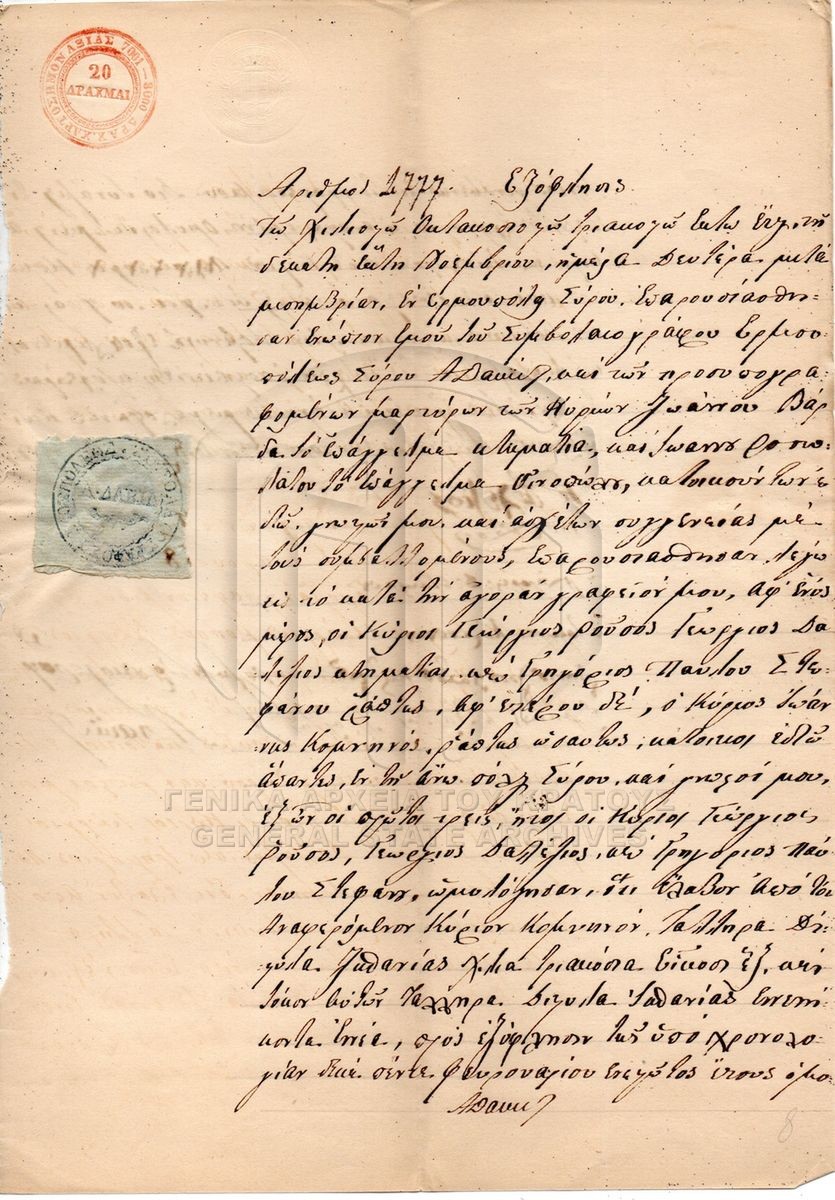 ΧΑΡΤΟΣΗΜΟΝ ΑΞΙΑΣ 7001—8000 ΔΡΑΧ.
20
ΔΡΑΧΜΑΙ
Αριθμος 1777. Εξόφλησις
Τω χιλιοςώ οκτακοσιοςώ τριακοςώ έκτω έτει, τη
δεκάτη έκτη Νοεμβρίου, ημέρα Δευτέρα μετά
μεσημβρίαν, εν Ερμουπόλει Σύρου, επαρουσιάσθη-
σαν ενώπιον εμού του Συμβολαιογράφου Ερμου-
πόλεως Σύρου Α Δαυίδ, και των προσυπογρα-
φομένων μαρτύρων των Κυρίων Ιωάννου Βάρ
δα το επάγγελμα κτηματία, και Ιωάννου
το επάγγελμα οινοπώλου, κατοικούντων ε
δώ, γνωςών μου και ασχέτων συγγενείας με
τους συμβαλλομένους, επαρουσιάσθησαν λέγω
εις το κατά την αγοράν γραφείον μου, αφ' ενός
μέρος, οι Κύριοι Γεώργιος Ρούσος Γεώργιος Δα
λέζιος κτηματίαι και Γρηγόριος Παύλου Στε-
φάνου ράπτης, αφ' ετέρου δε, ο Κύριος Ιωάν
νης Κομνηνός, ράπτης ωσαύτως, κάτοικοι εδώ
άπαντες, εν τη άνω πόλει Σύρου, και γνωςοί μου,
εξ ών οι πρώτοι τρεις, ήτοι οι Κύριοι Γεώργιος
Ρούσος, Γεώργιος Δαλέζιος, και Γρηγόριος Παύ
λου Στεφάνου, ωμολόγησαν, ότι έλαβον από τον
αναφερόμενον Κύριον Κομνηνόν, τάλληρα Δί-
ςυλα Ισπανίας χίλια τριακόσια είκοσι έξ, και
τόκον αυτών τάλληρα Δίςυλα Ισπανίας εννενή-
κοντα εννέα, προς εξόφλησιν των υπό χρονολο-
γίαν δεκα πέντε Φευρουαρίου ενεςώτος έτους ομο-
ΑΔαυίδ
8
ΓΕΝΙΚΑ ΑΡΧΕΙΑ ΤΟΥ ΚΡΑΤΟΥΣ
GENERAL STATE ARCHIVES